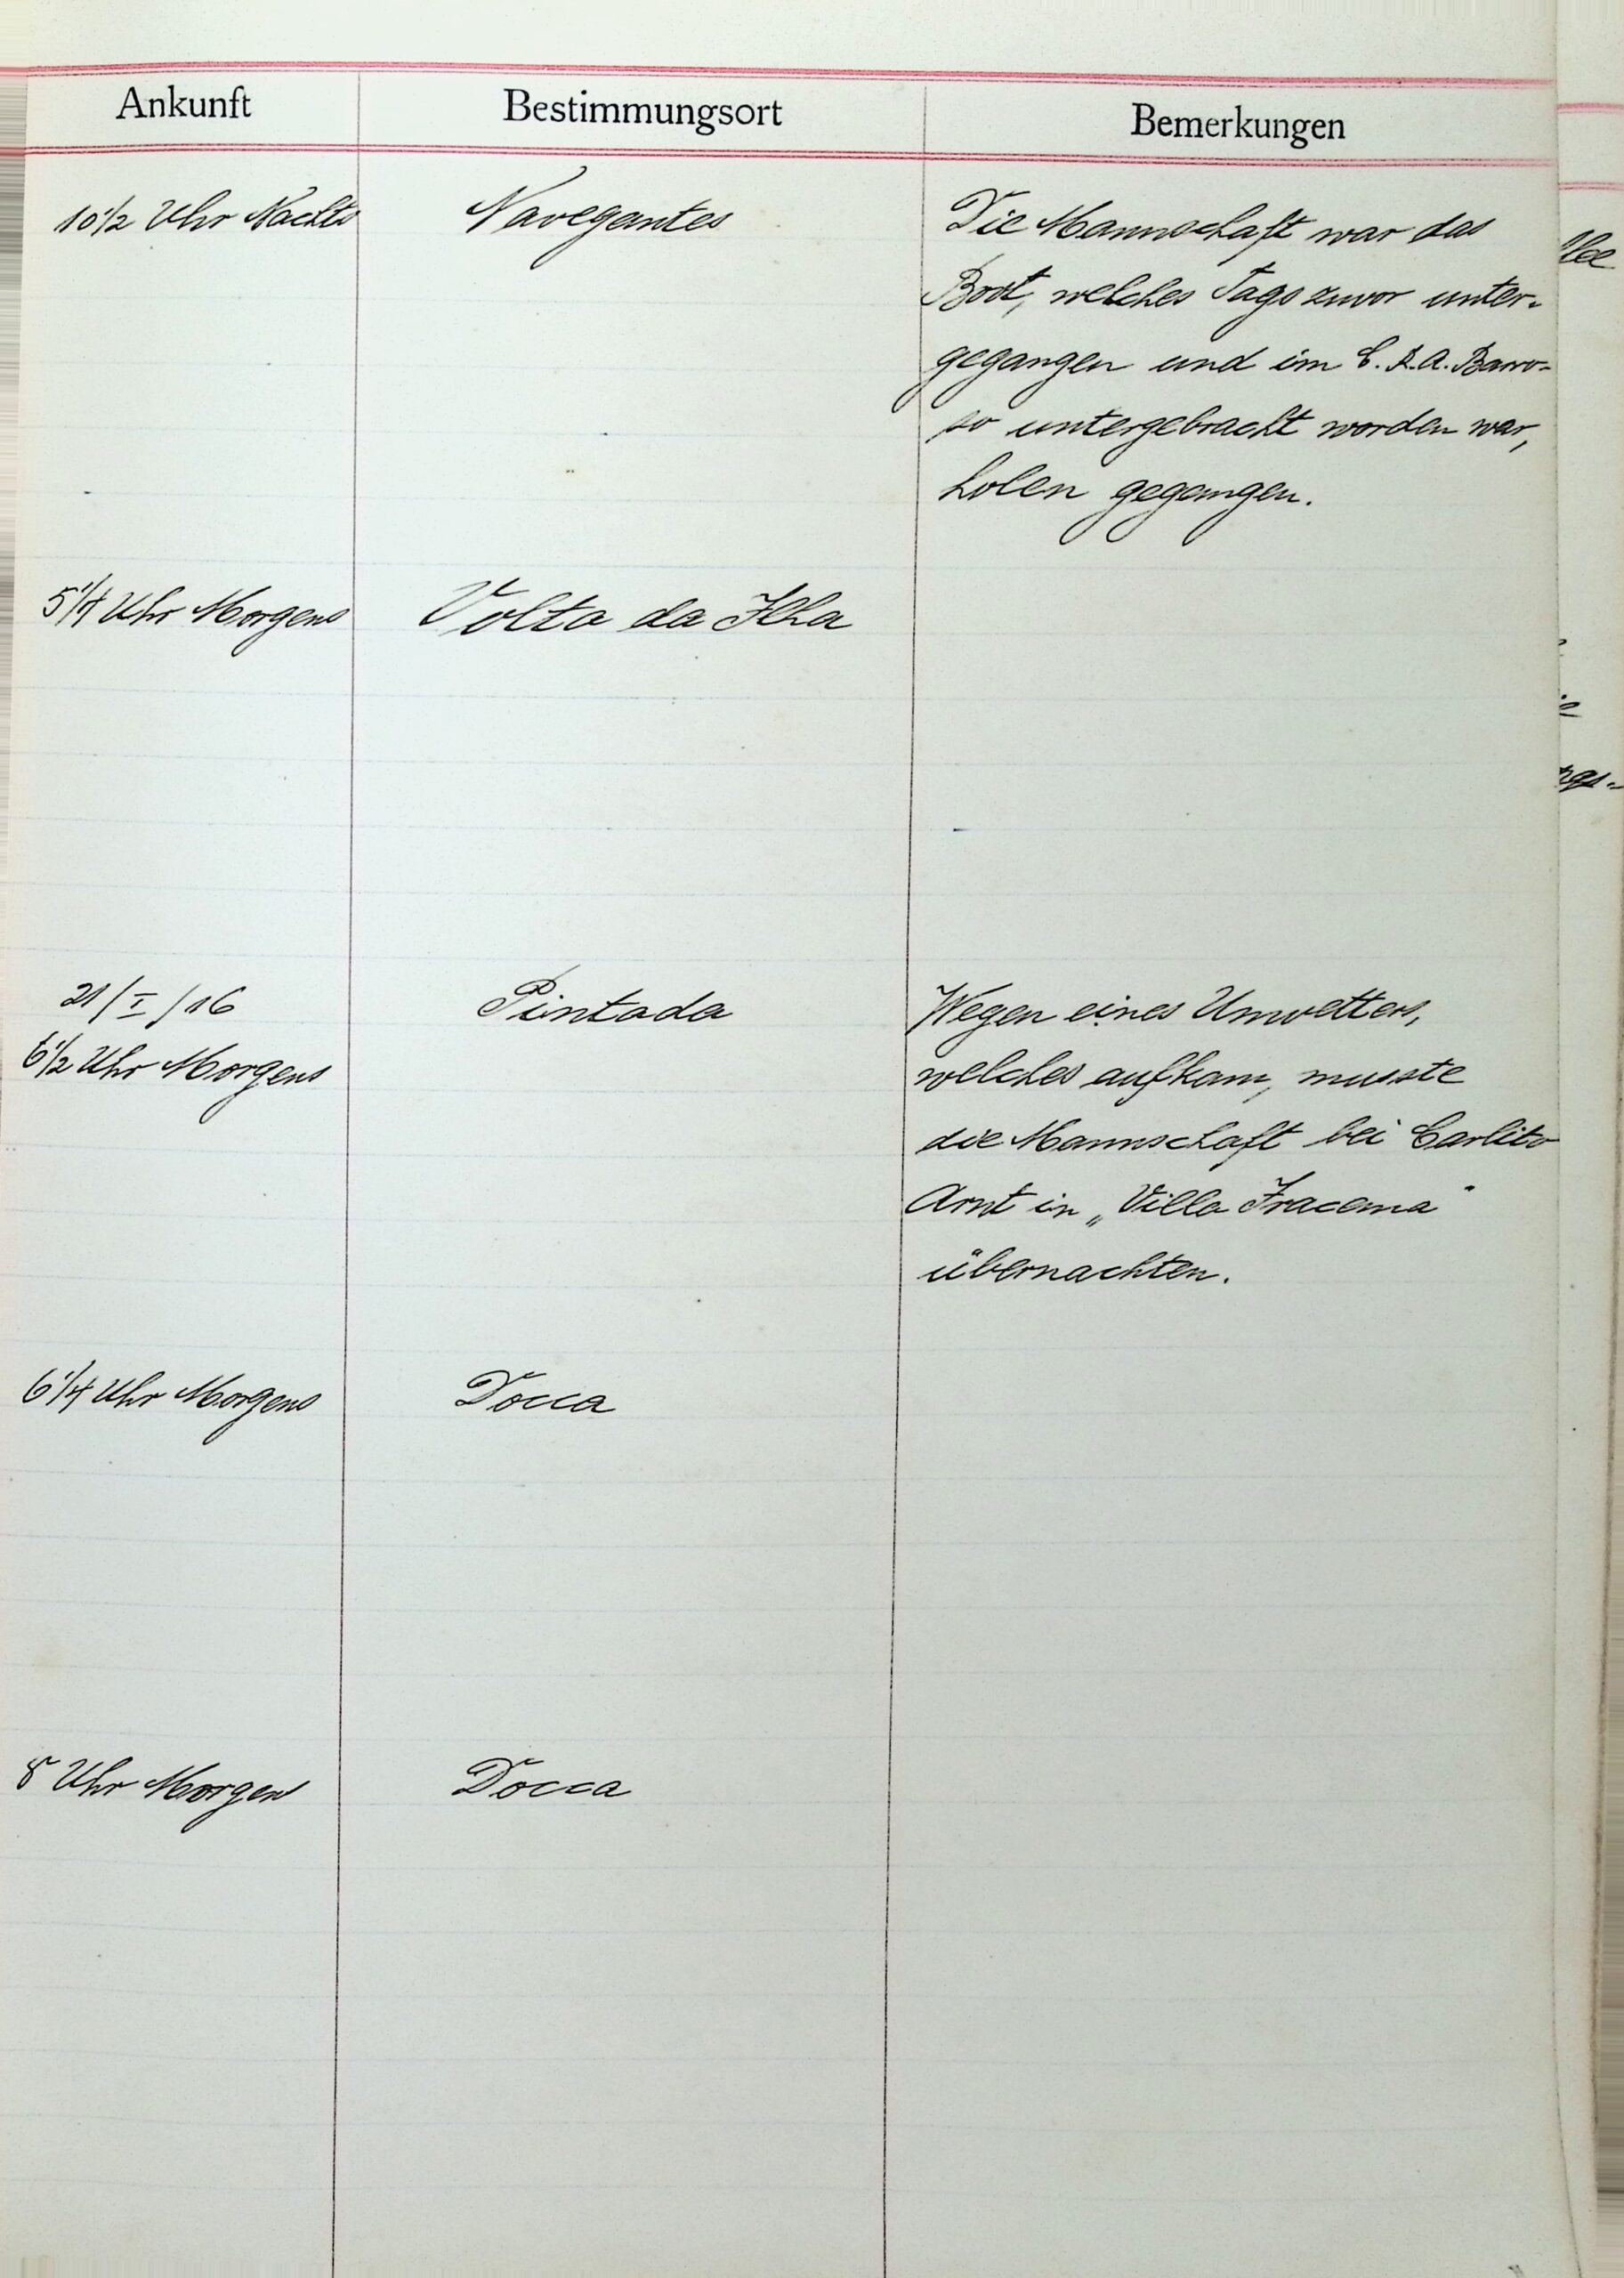 Ankunft Bestimmungsort Bemerkungen
10 1/2 Uhr Nachts Navegantes Die Mannschaft war das
Boot, welches Tags zuvor unter-
gegangen und im C. R. A. Barro-
so untergebracht worden war,
holen gegangen.
5 1/4 Uhr Morgens Volta da Ilha
21/I/16 Pintada Wegen eines Unwetters,
6 1/2 Uhr Morgens welches aufkam, musste
die Mannschaft bei Carlito
Arnt in „Villa Iracema"
übernachten.
6 1/4 Uhr Morgens Docca
8 Uhr Morgens Docca